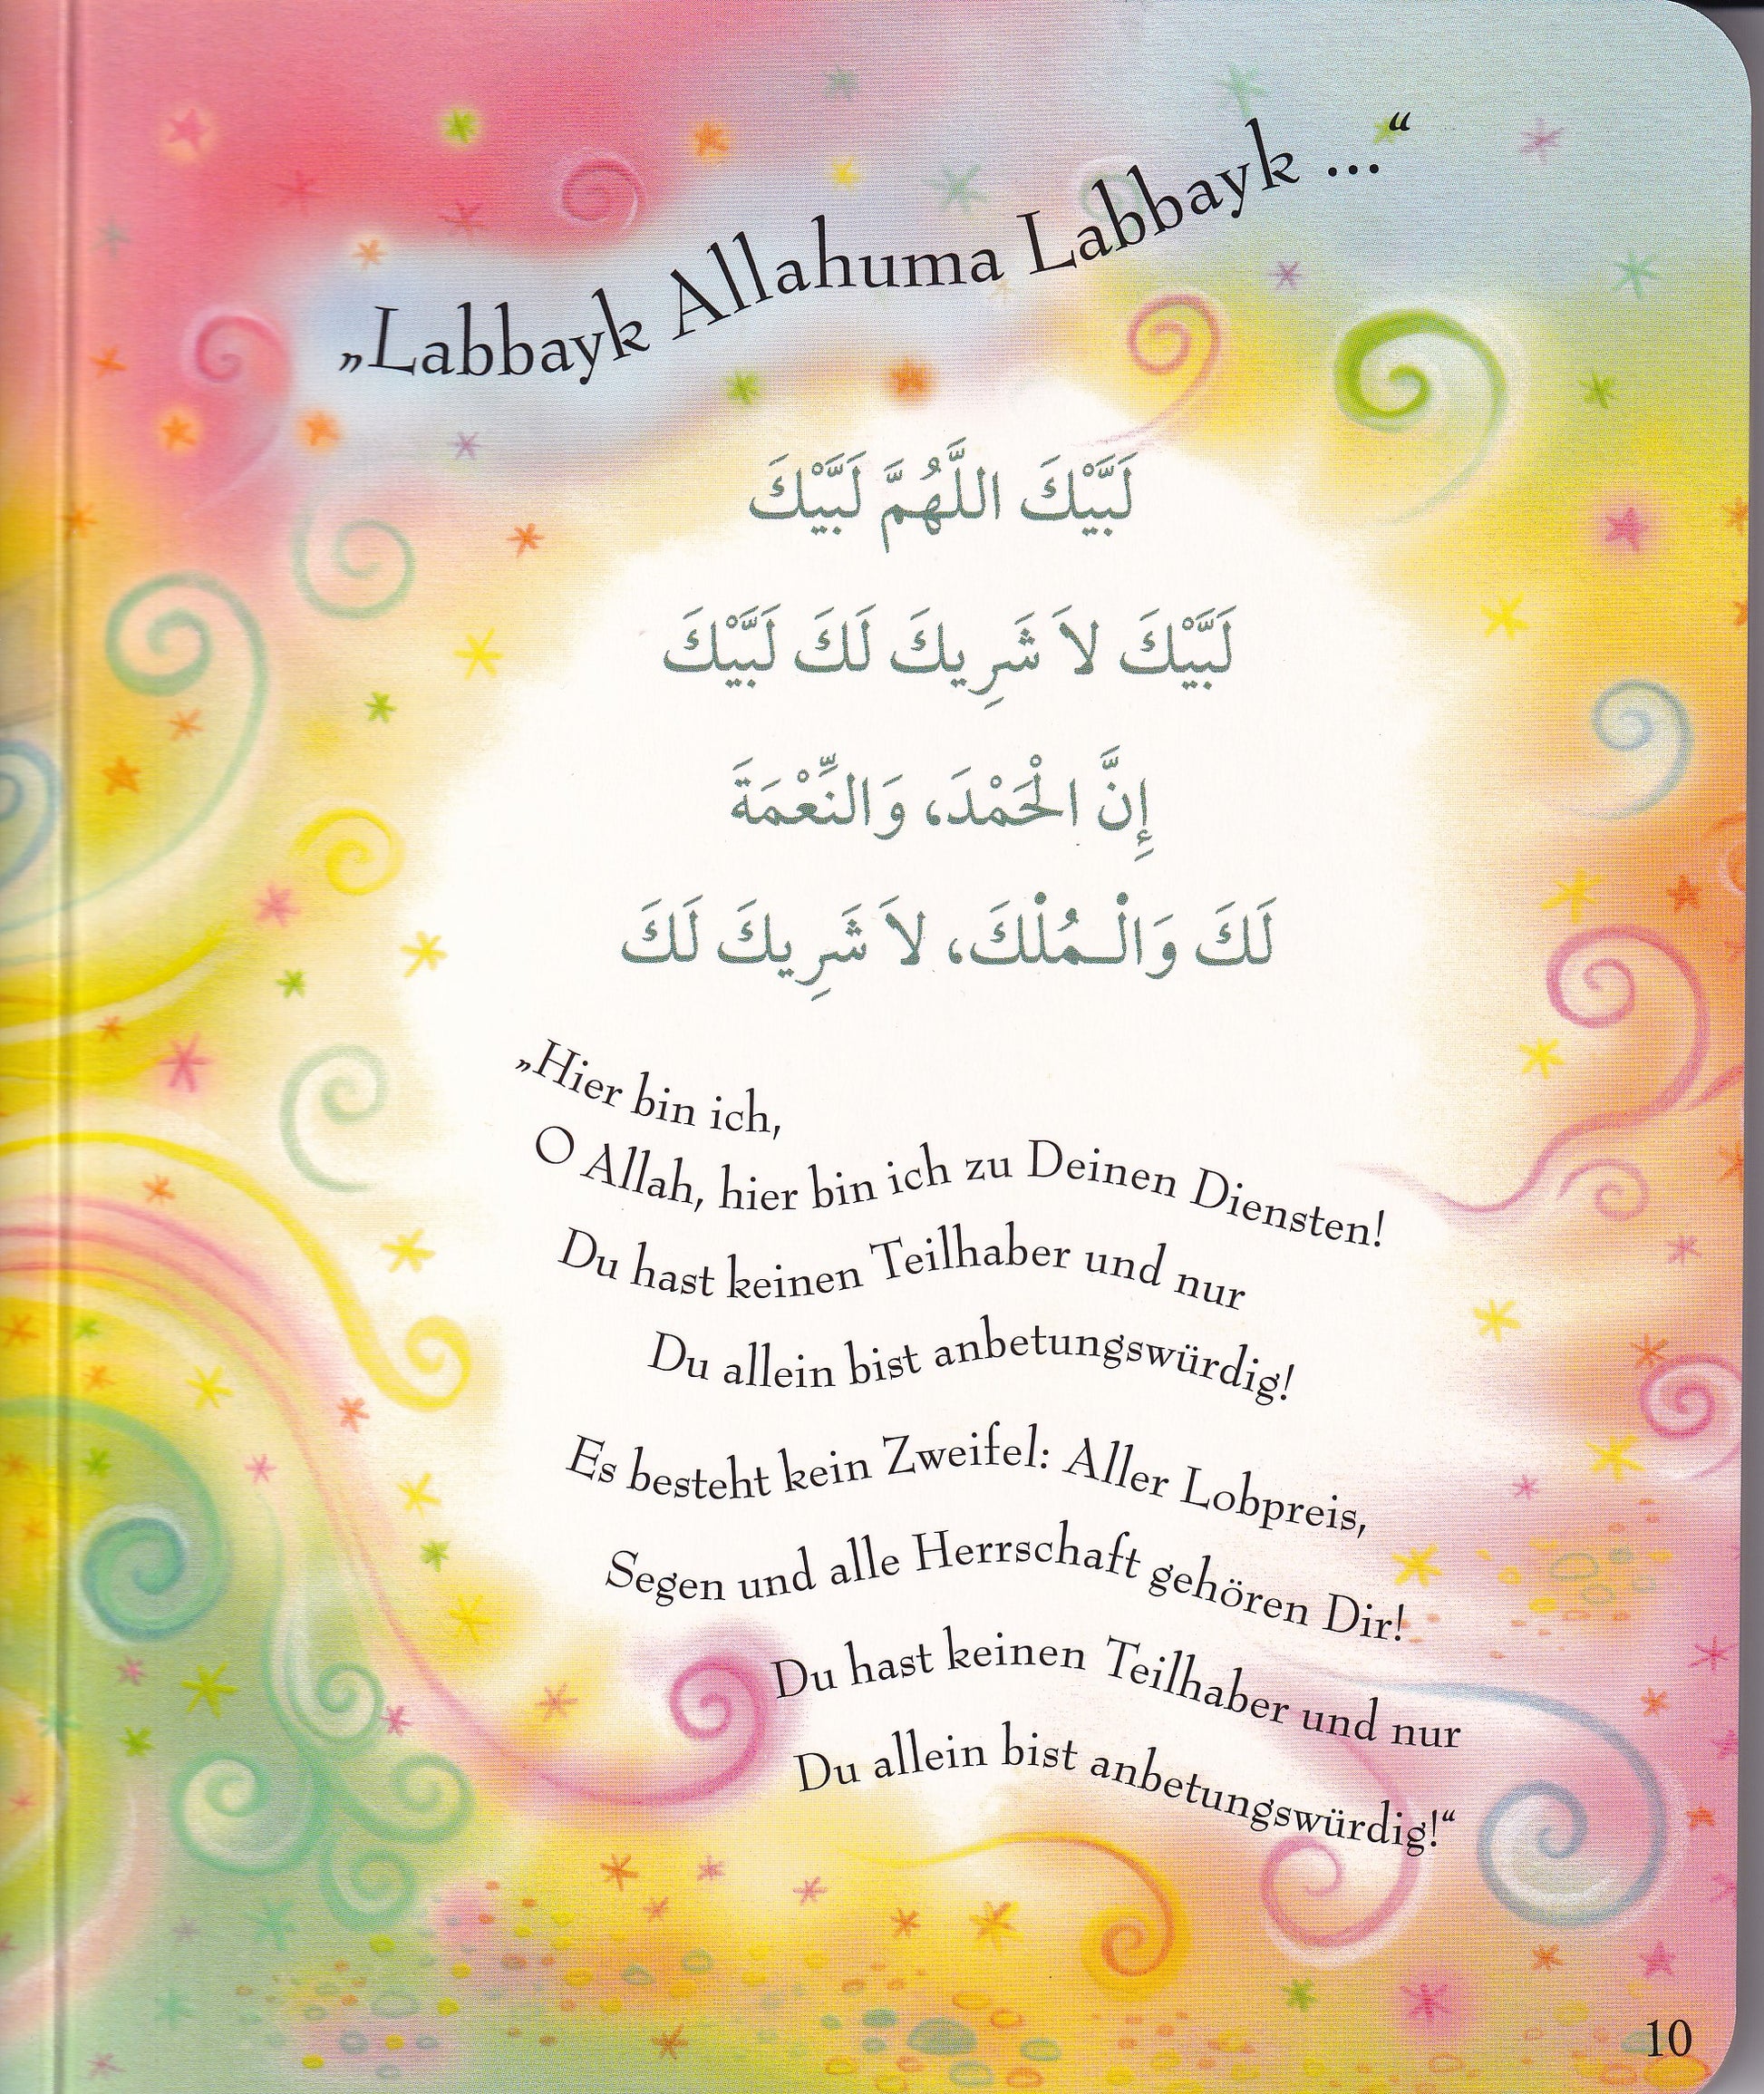 „Labbayk Allahuma Labbayk ...“
لَبَّيْكَ اللَّهُمَّ لَبَّيْكَ
لَبَّيْكَ لاَ شَرِيكَ لَكَ لَبَّيْكَ
إِنَّ الْحَمْدَ، وَالنِّعْمَةَ
لَكَ وَالْـمُلْكَ، لاَ شَرِيكَ لَكَ
„Hier bin ich,
O Allah, hier bin ich zu Deinen Diensten!
Du hast keinen Teilhaber und nur
Du allein bist anbetungswürdig!
Es besteht kein Zweifel: Aller Lobpreis,
Segen und alle Herrschaft gehören Dir!
Du hast keinen Teilhaber und nur
Du allein bist anbetungswürdig!“
10